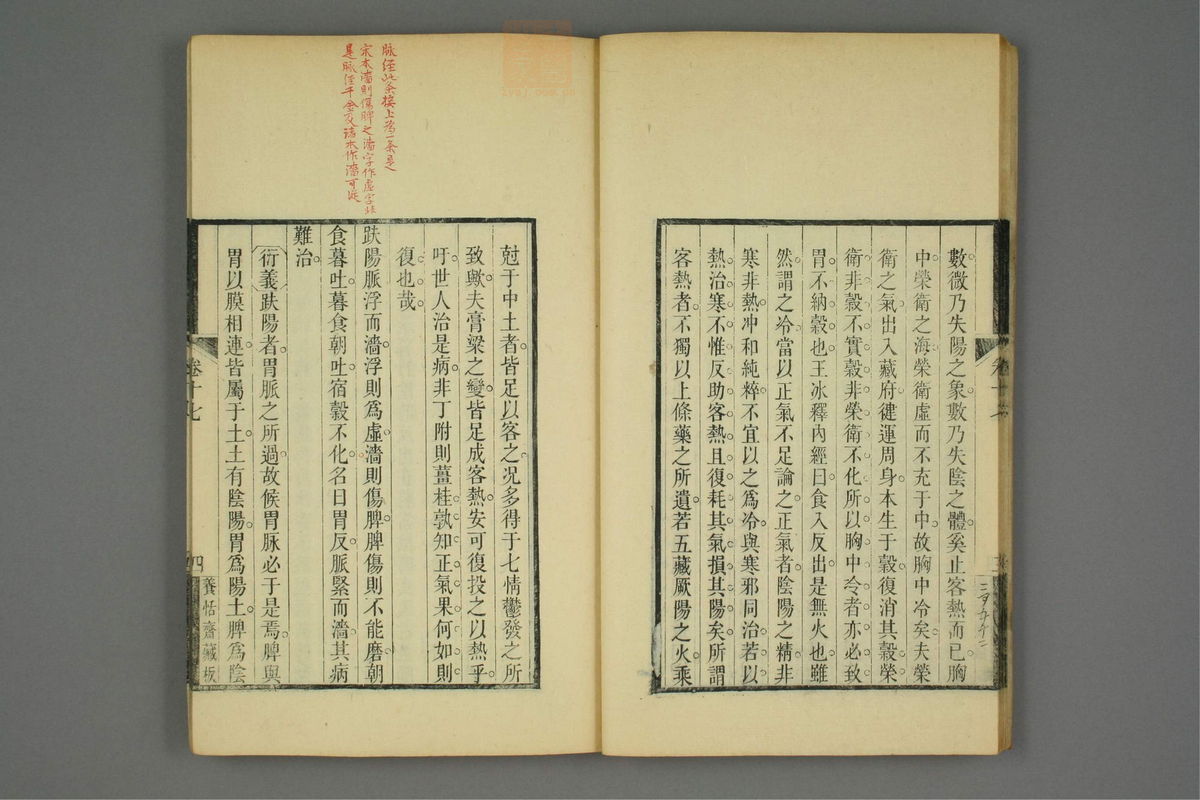 數微乃失陽之象數乃失陰之體奚止客熱而已胸
中榮衛之海榮衛虛而不充于中故胸中冷矣夫榮
衛之氣出入藏府徤運周身本生于穀復消其穀榮
衛非穀不實穀非榮衛不化所以胸中冷者亦必致
胃不納穀也王冰釋內經曰食入反出是無火也雖
然謂之冷當以正氣不足論之正氣者陰陽之精非
寒非熱冲和純粹不宜以之爲冷與寒邪同治若以
熱治寒不惟反助客熱且復耗其氣損其陽矣所謂
客熱者不獨以上條藥之所遺若五藏厥陽之火乘
脉經此条接上为一条是
宋本濇則傷脾之濇字作虛字非
是脉經千金及諸本作濇可從
尅于中土者皆足以客之况多得于七情鬱發之所
致歟夫膏粱之變皆足成客熱安可復投之以熱乎
吁世人治是病非丁附則薑桂孰知正氣果何如則
復也哉
趺陽脈浮而濇浮則爲虛濇則傷脾脾傷則不能磨朝
食暮吐暮食朝吐宿穀不化名曰胃反脈緊而濇其病
難治
衍義趺陽者胃脈之所過故候胃脈必于是焉脾與
胃以膜相連皆屬于土土有陰陽胃爲陽土脾爲陰
卷十七
四
養恬齋藏板